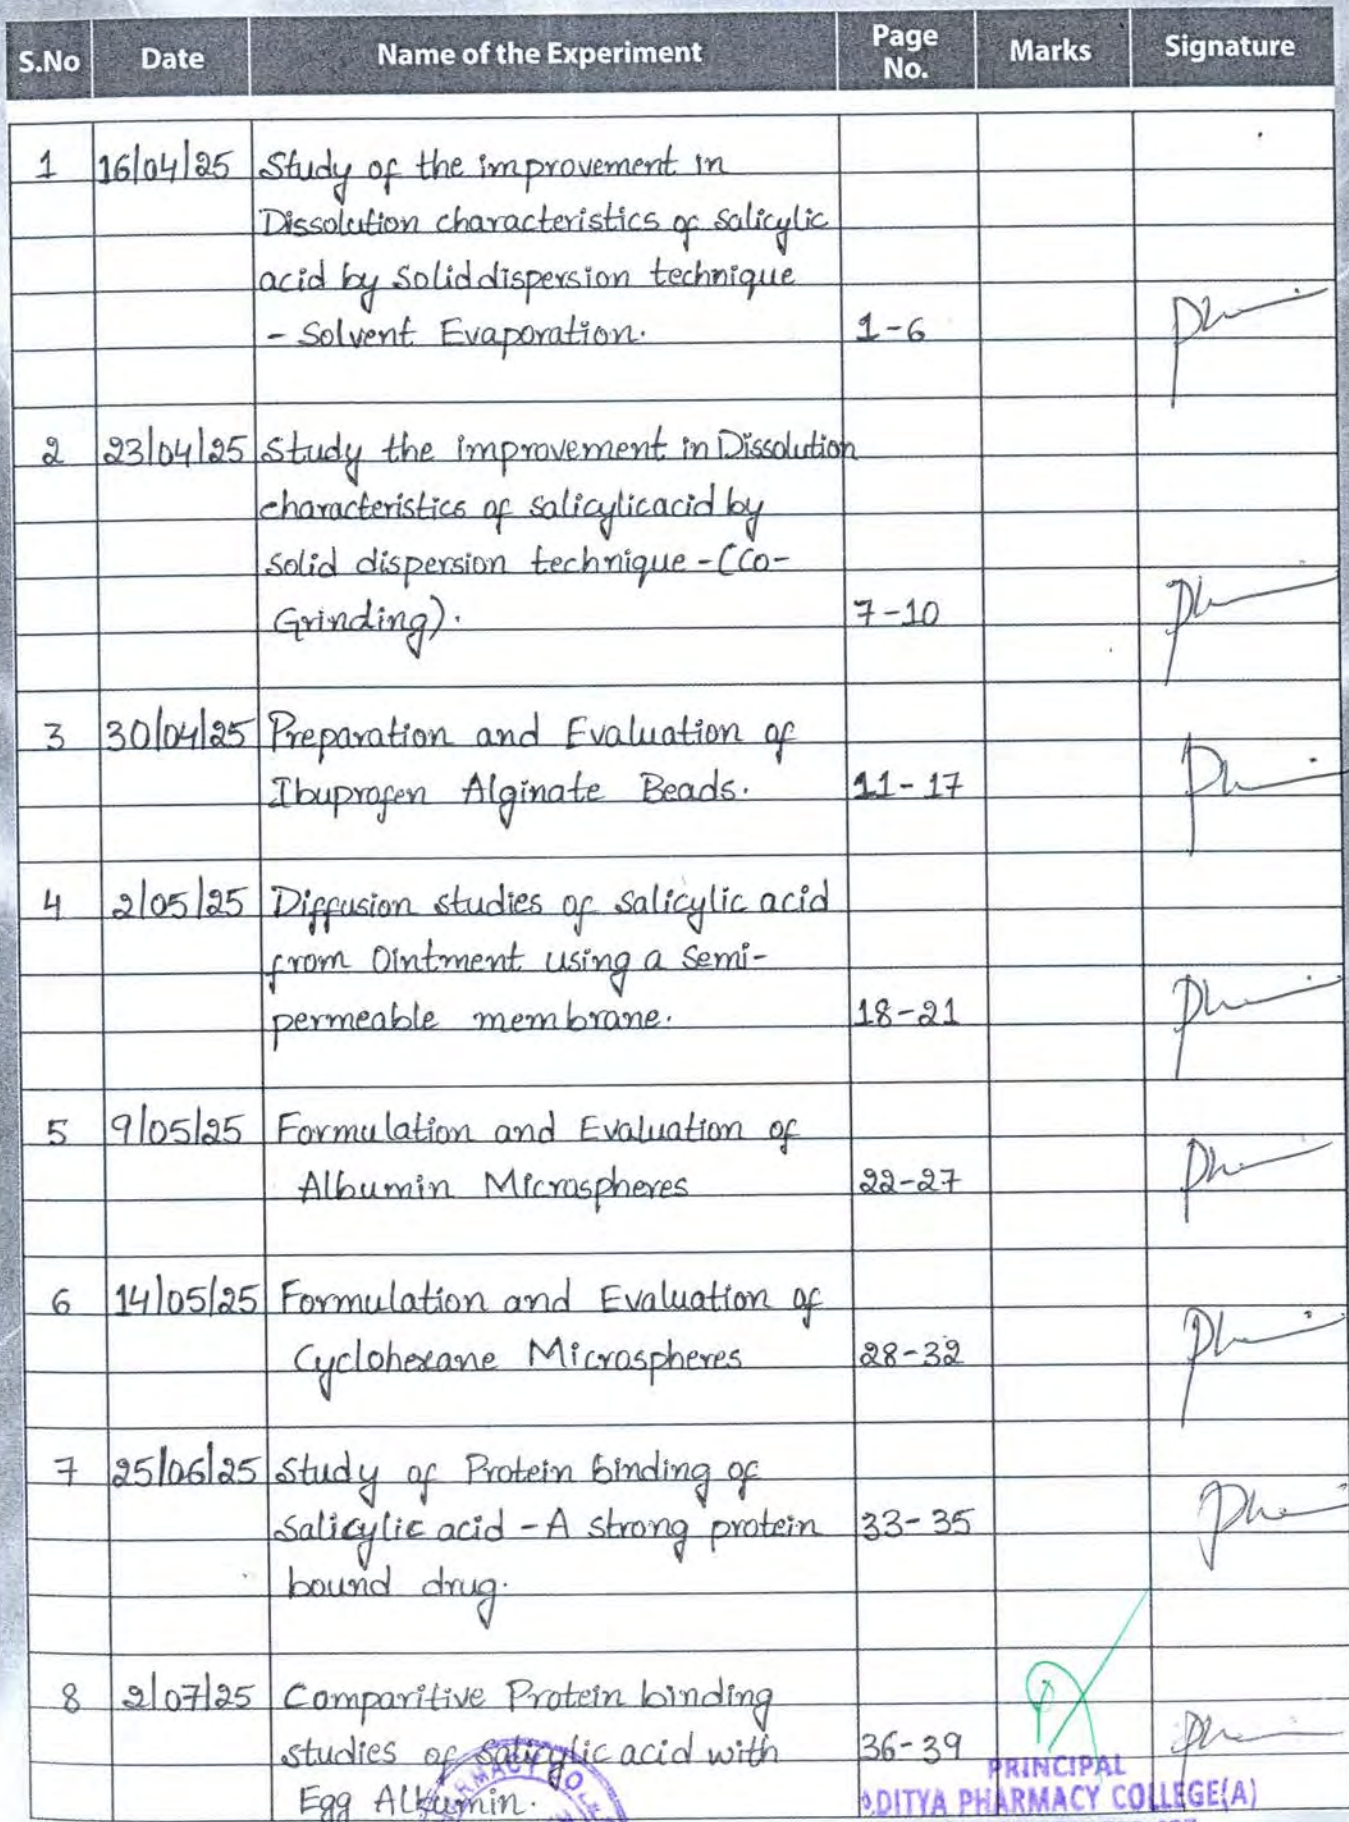 S.No Date Name of the Experiment Page No. Marks Signature
1 16/04/25 Study of the improvement in
Dissolution characteristics of salicylic
acid by Solid dispersion technique
- Solvent Evaporation. 1-6
2 23/04/25 Study the improvement in Dissolution
characteristics of salicylic acid by
solid dispersion technique - (Co-
Grinding). 7-10
3 30/04/25 Preparation and Evaluation of
Ibuprofen Alginate Beads. 11-17
4 2/05/25 Diffusion studies of Salicylic acid
from Ointment using a Semi-
permeable membrane. 18-21
5 9/05/25 Formulation and Evaluation of
Albumin Microspheres 22-27
6 14/05/25 Formulation and Evaluation of
Cyclohexane Microspheres 28-32
7 25/06/25 Study of Protein binding of
Salicylic acid - A strong protein 33-35
bound drug.
8 2/07/25 Comparitive Protein binding
studies of Salicylic acid with 36-39
Egg Albumin.
PRINCIPAL
ADITYA PHARMACY COLLEGE(A)